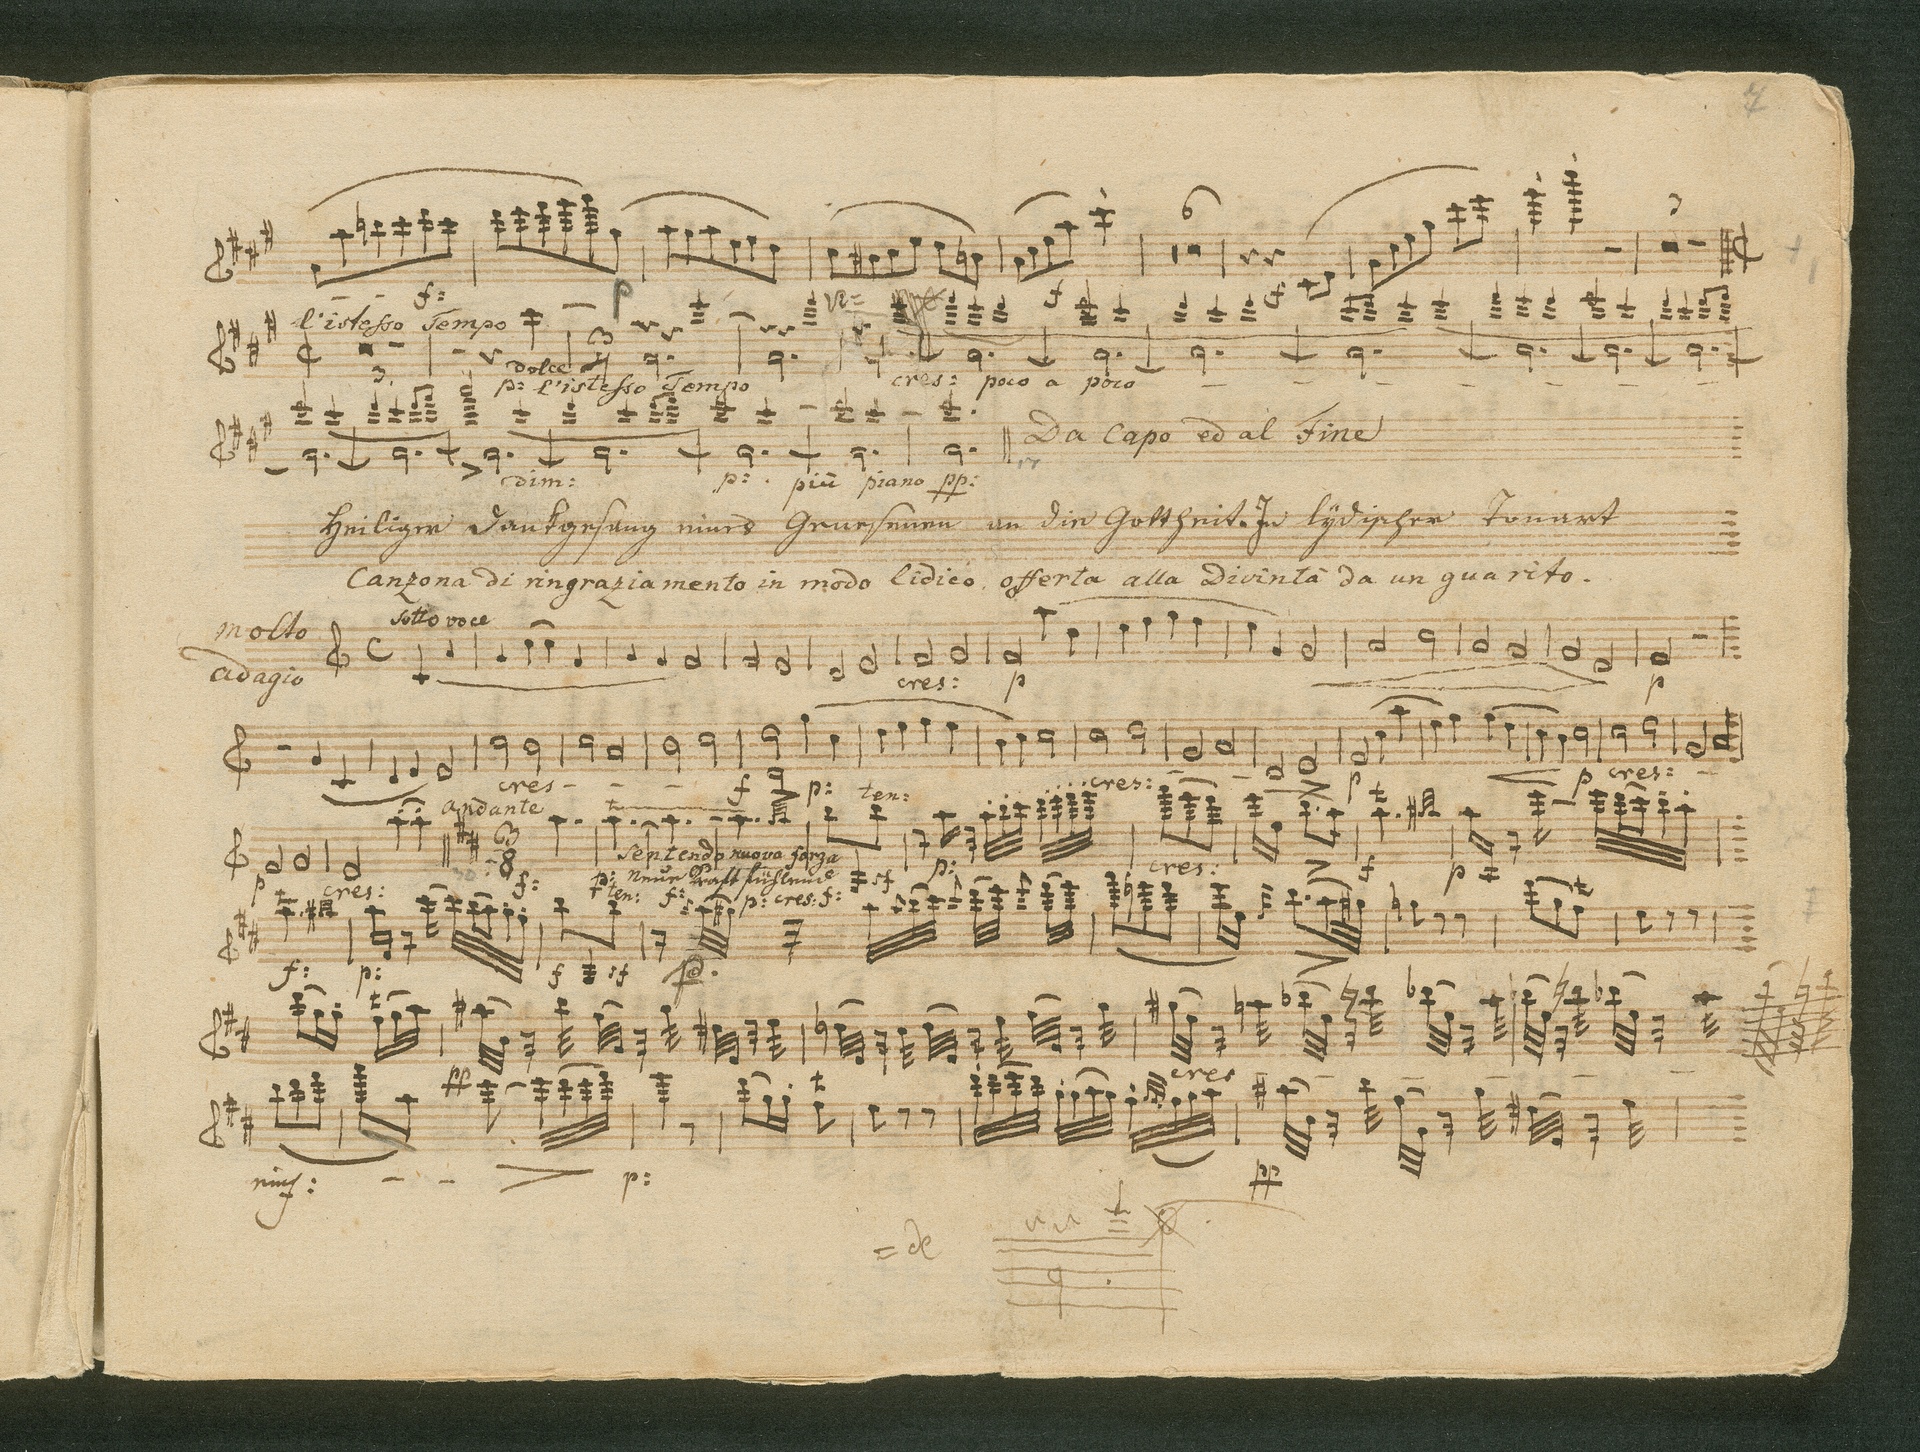 7
f: p f
l'istesso Tempo
dolce
p: l'istesso Tempo cres: poco a poco
dim: p: più piano pp:
Da Capo ed al Fine
Heiliger Dankgesang eines Genesenen an die Gottheit. In lÿdischer Tonart
Canzona di ringraziamento in modo lidico offerta alla Divinità da un guarito.
molto sotto voce
adagio
cres: p p
cres f p: ten: cres: p p cres:
andante
Sentendo nuova forza
Neue Kraft fühlend
p cres: f: p: cres: f p
ten: f: p: cres: f: sf
f: p: f sf p.
cres
pp
rinf: p: pp
= de